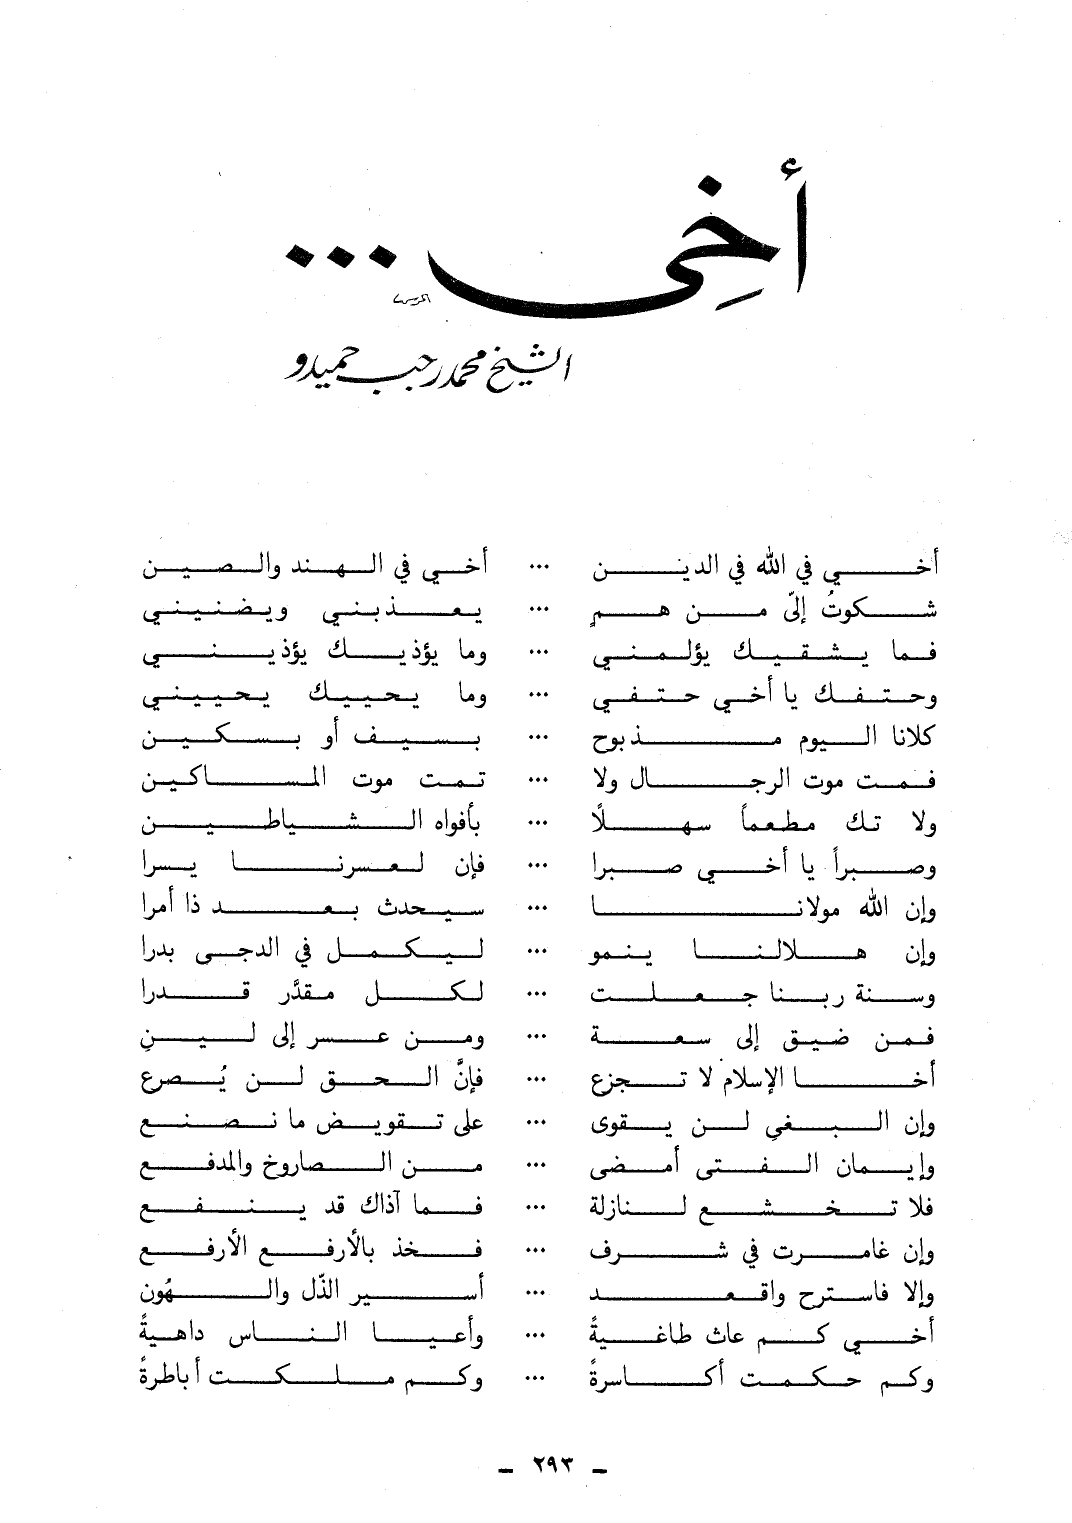 أخِي ...
الشيخ محمد رجب حميدو
أخي في الله في الدين ... أخي في الهند والصين
شكوتُ إليّ من همٍ ... يعذبني ويضنيني
فما يشقيك يؤلمني ... وما يؤذيك يؤذيني
وحتفك يا أخي حتفي ... وما يحييك يحييني
كلانا اليوم مذبوح ... بسيف أو بسكين
فمت موت الرجال ولا ... تمت موت المساكين
ولا تك مطعماً سهلًا ... بأفواه الشياطين
وصبراً يا أخي صبرا ... فإن لعسرنا يسرا
وإن الله مولانا ... سيحدث بعد ذا أمرا
وإن هلالنا ينمو ... ليكمل في الدجى بدرا
وسنة ربنا جعلت ... لكل مقدَّر قدرا
فمن ضيق إلى سعة ... ومن عسر إلى لينِ
أخا الإسلام لا تجزع ... فإنَّ الحق لن يُصرع
وإن البغي لن يقوى ... على تقويض ما نصنع
وإيمان الفتى أمضى ... من الصاروخ والمدفع
فلا تخشع لنازلة ... فما آذاك قد ينفع
وإن غامرت في شرف ... فخذ بالأرفع الأرفع
وإلا فاسترح واقعد ... أسير الذّل والهُون
أخي كم عاث طاغيةً ... وأعيا الناس داهيةً
وكم حكمت أكاسرةً ... وكم ملكت أباطرةً
- ٢٩٣ -